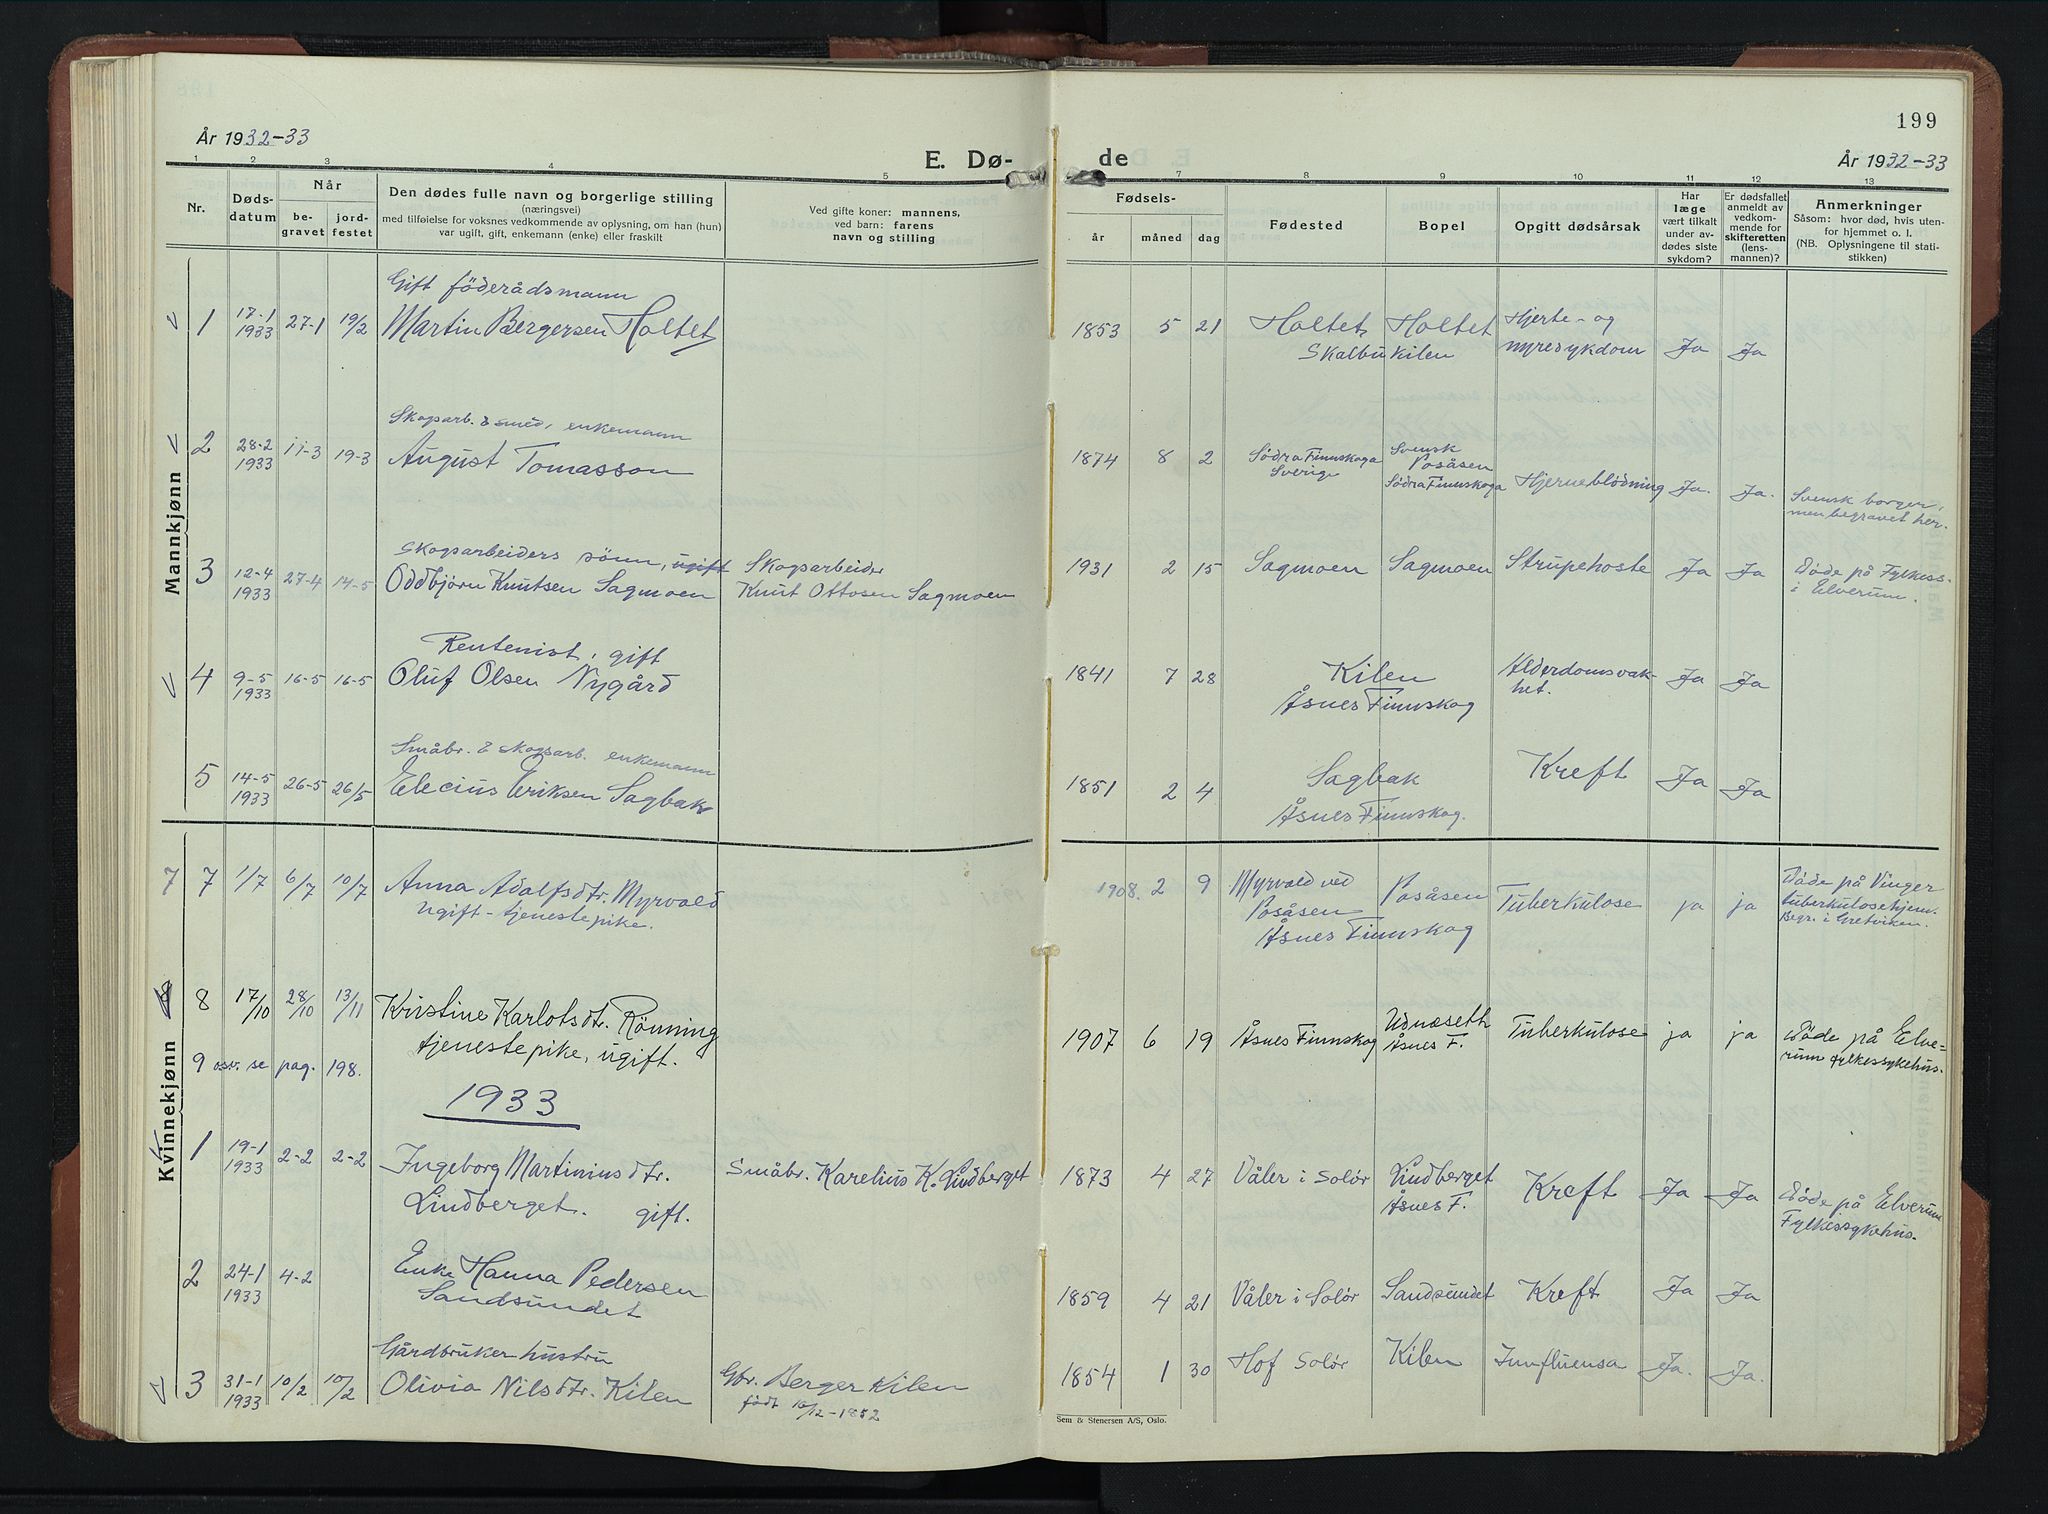 199
År 1932-33
E. Dø-
de
År 1932-33
1 2 3 4 5 7 8 9 10 11 12 13
Nr.
Døds-
datum
Når
be-
gravet
jord-
festet
Den dødes fulle navn og borgerlige stilling
(næringsvei)
med tilføielse for voksnes vedkommende av oplysning, om han (hun)
var ugift, gift, enkemann (enke) eller fraskilt
Ved gifte koner: mannens,
ved barn: farens
navn og stilling
Fødsels-
år måned dag
Fødested
Bopel
Opgitt dødsårsak
Har
læge
vært tilkalt
under av-
dødes siste
sykdom?
Er dødsfallet
anmeldt av
vedkom-
mende for
skifteretten
(lens-
mannen)?
Anmerkninger
Såsom: hvor død, hvis uten-
for hjemmet o. l.
(NB. Oplysningene til stati-
stikken)
Mannkjønn
Gift föderådsmann
1 17-1 1933 27-1 19/2 Martin Bergersen Holtet 1853 5 21 Holtet Holtet Hjerte- og
Skalbukilen nyresykdom Ja Ja
Skogsarb. & smed, enkemann
2 28-2 1933 11-3 19-3 August Tomasson 1874 8 2 Södra Finnskoga Sverige Svensk Posåsen
Södra Finnskoga Hjerneblödning Ja. Ja. Svensk borger,
men begravet her.
Skogsarbeiders sönn, ugift Skogsarbeider
3 12-4 1933 27-4 14-5 Oddbjörn Knutsen Sagmoen Knut Ottosen Sagmoen 1931 2 15 Sagmoen Sagmoen Strupehoste Ja Ja Döde på Fylkess-
i Elverum.
Rentenist, gift
4 9-5 1933 16-5 16-5 Oluf Olsen Nygård 1841 7 28 Kilen Alderdomsvak-
Åsnes Finnskog het. Ja Ja
Småbr. & skogsarb. enkemann
5 14-5 1933 26-5 26/5 Elecius Eriksen Sagbak 1851 2 4 Sagbak Kreft Ja Ja
Åsnes Finnskog.
Kvinnekjønn
7 7 1/7 6/7 10/7 Anna Adolfsdtr. Myrvold 1908. 2 9 Myrvold ved Posåsen Tuberkulose ja ja Döde på Vinger
ugift - tjenestepike. Posåsen tuberkulosehjem.
Åsnes Finnskog Begr. i Gretviken.
8 8 17/10 28/10 13/11 Kristine Karlotsdtr. Rönning 1907 6 19 Åsnes Finnskog Udnæseth Tuberkulose ja ja Döde på Elve=
tjenestepike, ugift. Åsnes F. rum fylkessykehus.
9 osv. se pag. 198.
1933
1 19-1 1933 2-2 2-2 Ingeborg Martiniusdtr. Småbr. Karelius K. Lindberget 1873 4 27 Våler i Solör Lindberget Kreft Ja Ja Döde på Elverum
Lindberget. gift. Åsnes F. Fylkessykehus.
2 24-1 1933 4-2 Enke Hanna Pedersen 1859 4 21 Våler i Solör Sandsundet Kreft Ja Ja
Sandsundet
Gårdbruker hustru
3 31-1 1933 10/2 10/2 Olivia Nilsdtr. Kilen Gbr. Berger Kilen 1854 1 30 Hof Solör Kilen Innfluensa Ja. Ja.
födt 16/12-1852
Sem & Stenersen A/S, Oslo.